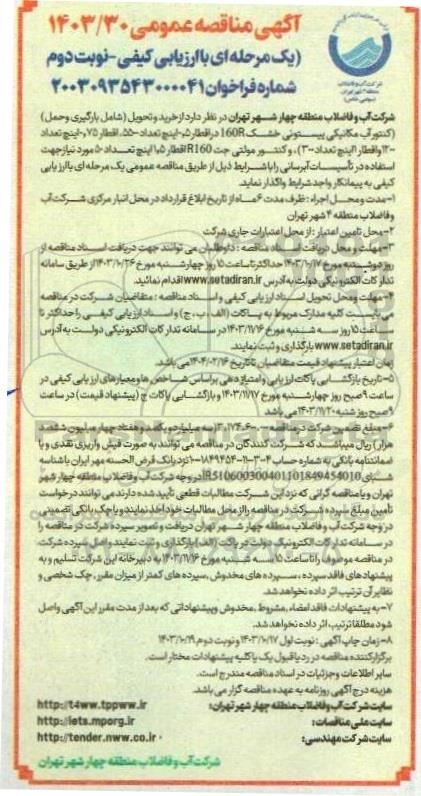 آگهی مناقصه عمومی ۱۴۰۳/۳۰
(یک مرحله ای با ارزیابی کیفی-نوبت دوم
شماره فراخوان ۲۰۰۳۰۹۳۵۴۳۰۰۰۰۴۱
شرکت آب و فاضلاب
منطقه ۴ شهر تهران
(سهامی خاص)
شرکت آب و فاضلاب منطقه چهار شهر تهران در نظر دارد از خرید و تحویل (شامل بارگیری و حمل)
(کنتور آب مکانیکی پیستونی خشک 160R در اقطار ۰٫۵-اینچ تعداد ۵۵۰۰، اقطار ۰٫۷۵-اینچ تعداد
۱۲۰۰ و اقطار ۱اینچ تعداد ۳۰۰)، و کنتور مولتی جت R160 اقطار ۱٫۵ اینچ تعداد ۵۰ مورد نیاز جهت
استفاده در تأسیسات آبرسانی را با شرایط ذیل از طریق مناقصه عمومی یک مرحله ای با ارزیابی
کیفی به پیمانکار واجد شرایط واگذار نماید.
۱-مدت و محل اجراء : ظرف مدت ۶ ماه از تاریخ ابلاغ قرارداد در محل انبار مرکزی شرکت آب
و فاضلاب منطقه ۴ شهر تهران
۲-محل تامین اعتبار : از محل اعتبارات جاری شرکت
۳-مهلت و محل دریافت اسناد مناقصه : داوطلبان می توانند جهت دریافت اسناد مناقصه از
روز دوشنبه مورخ ۱۴۰۳/۱۰/۱۷ حداکثر تا ساعت ۱۵ روز چهارشنبه مورخ ۱۴۰۳/۱۰/۲۶ از طریق سامانه
تدارکات الکترونیکی دولت به آدرس www.setadiran.ir اقدام نمائید.
۴-مهلت و محل تحویل اسناد ارزیابی کیفی و اسناد مناقصه : متقاضیان شرکت در مناقصه
می بایست کلیه مدارک مربوط به پاکات (الف، ب، ج) و اسناد ارزیابی کیفی را حداکثر تا
ساعت ۱۵ روز سه شنبه مورخ ۱۴۰۳/۱۱/۱۶ در سامانه تدارکات الکترونیکی دولت به آدرس
www.setadiran.ir بارگذاری و ثبت نمایند.
زمان اعتبار پیشنهاد قیمت متقاضیان تا تاریخ ۱۴۰۴/۰۲/۱۶ می باشد.
۵-تاریخ بازگشایی پاکات ارزیابی و امتیازدهی بر اساس شاخص ها و معیارهای ارزیابی کیفی در
ساعت ۹ صبح روز چهارشنبه مورخ ۱۴۰۳/۱۱/۱۷ و بازگشایی پاکات ج (پیشنهاد قیمت) در ساعت
۹ صبح روز شنبه ۱۴۰۳/۱۱/۲۰ می باشد
۶-مبلغ تضمین شرکت در مناقصه ۳،۱۷۴،۶۰۰،۰۰۰ (سه میلیارد و یکصد و هفتاد چهار میلیون ششصد
هزار) ریال میباشد که شرکت کنندگان در مناقصه می توانند به صورت فیش واریزی نقدی و یا
ضمانتنامه بانکی به شماره حساب نزد بانک قرض الحسنه مهر ایران با شناسه
شبای IR510600300401101849454010 در وجه شرکت آب و فاضلاب منطقه چهار شهر
تهران و یا مناقصه گرانی که نزد این شرکت مطالبات قطعی تأیید شده دارند می توانند درخواست
تأمین مبلغ سپرده شرکت در مناقصه را از محل مطالبات خود اخذ نمایند و یا چک بانکی تضمینی
در وجه شرکت آب و فاضلاب منطقه چهار شهر تهران دریافت و تصویر سپرده شرکت در مناقصه را
در سامانه تدارکات الکترونیک دولت در پاکت (الف) بارگذاری و ثبت نمایند و اصل سپرده شرکت
در مناقصه موصوف را تا ساعت ۱۵ سه شنبه مورخ ۱۴۰۳/۱۱/۱۶ به دبیرخانه این شرکت تسلیم و به
پیشنهادهای فاقد سپرده، سپرده های مخدوش، سپرده های کمتر از میزان مقرر، چک شخصی و
نظایر آن ترتیب اثر داده نخواهد شد.
۷-به پیشنهادات فاقد امضاء، مشروط، مخدوش و پیشنهاداتی که بعد از مدت مقرر این آگهی واصل
شود مطلقا ترتیب اثر داده نخواهد شد.
۸-زمان چاپ آگهی : نوبت اول ۱۴۰۳/۱۰/۱۷ و نوبت دوم ۱۴۰۳/۱۰/۱۹
برگزارکننده مناقصه در رد یا قبول یک یا کلیه پیشنهادات مختار است.
سایر اطلاعات و جزئیات در اسناد مناقصه مندرج است.
هزینه درج آگهی روزنامه به عهده مناقصه گزار می باشد.
سایت شرکت آب و فاضلاب منطقه چهار شهر تهران: http://t4ww.tpww.ir
سایت ملی مناقصات: http://iets.mporg.ir
سایت شرکت مهندسی: http://tender.nww.co.ir
شرکت آب و فاضلاب منطقه چهار شهر تهران